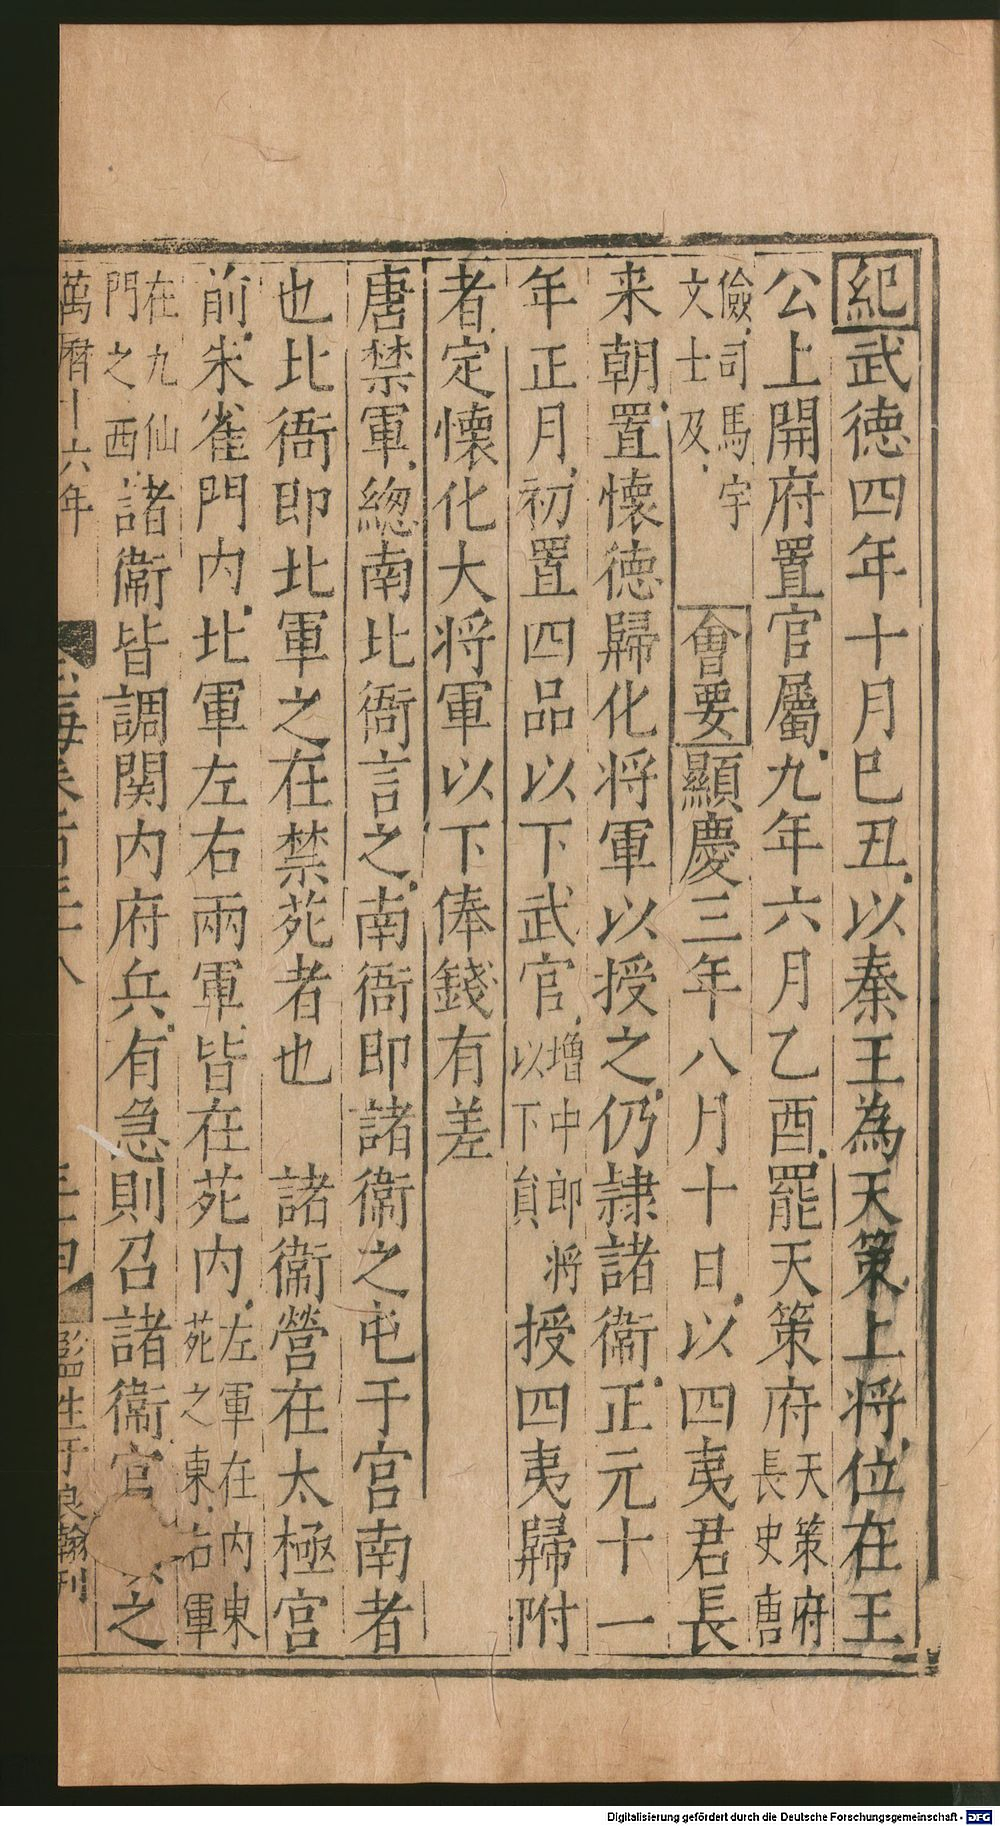 紀武德四年十月巳丑以秦王為天策上将位在王
公上開府置官屬九年六月乙酉罷天策府天策府長史唐
儉司馬宇文士及 會要顯慶三年八月十日以四夷君長
来朝置懷德歸化将軍以授之仍隷諸衛正元十一
年正月初置四品以下武官增中郎将以下員授四夷歸附
者定懷化大将軍以下俸錢有差
唐禁軍緫南北衙言之南衙即諸衛之屯于宫南者
也北衙即北軍之在禁苑者也 諸衛營在太極宫
前朱雀門内北軍左右兩軍皆在苑内左軍在内東苑之東右軍
在九仙門之西諸衛皆調関内府兵有急則召諸衛官之
萬曆十六年 玉海卷百三十八 監生于良翰刊
Digitalisierung gefördert durch die Deutsche Forschungsgemeinschaft - DFG